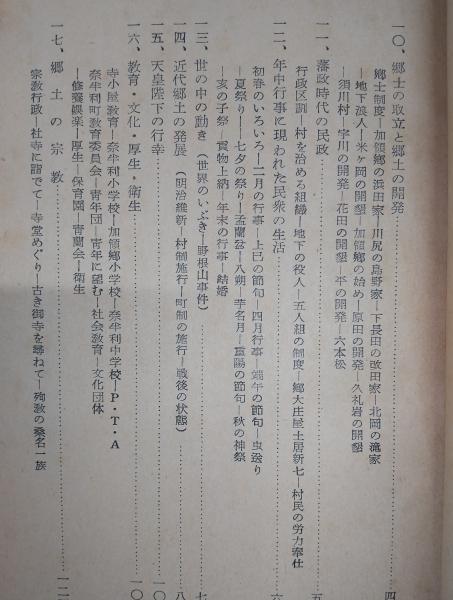 一〇、郷士の取立と郷土の開発……四
郷士制度―加領郷の浜田家―川尻の島野家―下長田の改田家―北岡の滝家
―地下浪人―米ヶ岡の開墾―加領郷の始め―原田の開発―久礼岩の開墾
―須川村、宇川の開発―花田の開墾―平の開発―六本松
一一、藩政時代の民政……五
行政区劃―村を治める組織―地下の役人―五人組の制度―郷大庄屋土居新七―村民の労力奉仕
一二、年中行事に現われた民衆の生活……六
初春のいろいろ―二月の行事―上巳の節句―四月行事―端午の節句―虫送り
―夏祭り―七夕の祭り―盂蘭盆―八朔―芋名月―重陽の節句―秋の神祭
―亥の子祭―貢物上納―年末の行事―結婚
一三、世の中の動き（世界のいぶき―野根山事件）……七
一四、近代郷土の発展（明治維新―村制施行―町制の施行―戦後の状態）……八
一五、天皇陛下の行幸……一〇
一六、教育・文化・厚生・衛生……一〇
寺小屋教育―奈半利小学校―加領郷小学校―奈半利中学校―P・T・A
奈半利町教育委員会―青年団―青年に望む―社会教育―文化団体
―修養娯楽―厚生、保育園―青蘭会―衛生
一七、郷土の宗教……一二
宗教行政―社寺に詣でて―寺堂めぐり―古き御寺を尋ねて―殉教の桑名一族